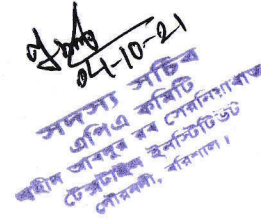 04-10-21
সদস্য সচিব
এপিএ কমিটি
শহীদ আবদুর রব সেরনিয়াবাত
টেক্সটাইল ইনস্টিটিউট
গৌরনদী, বরিশাল।